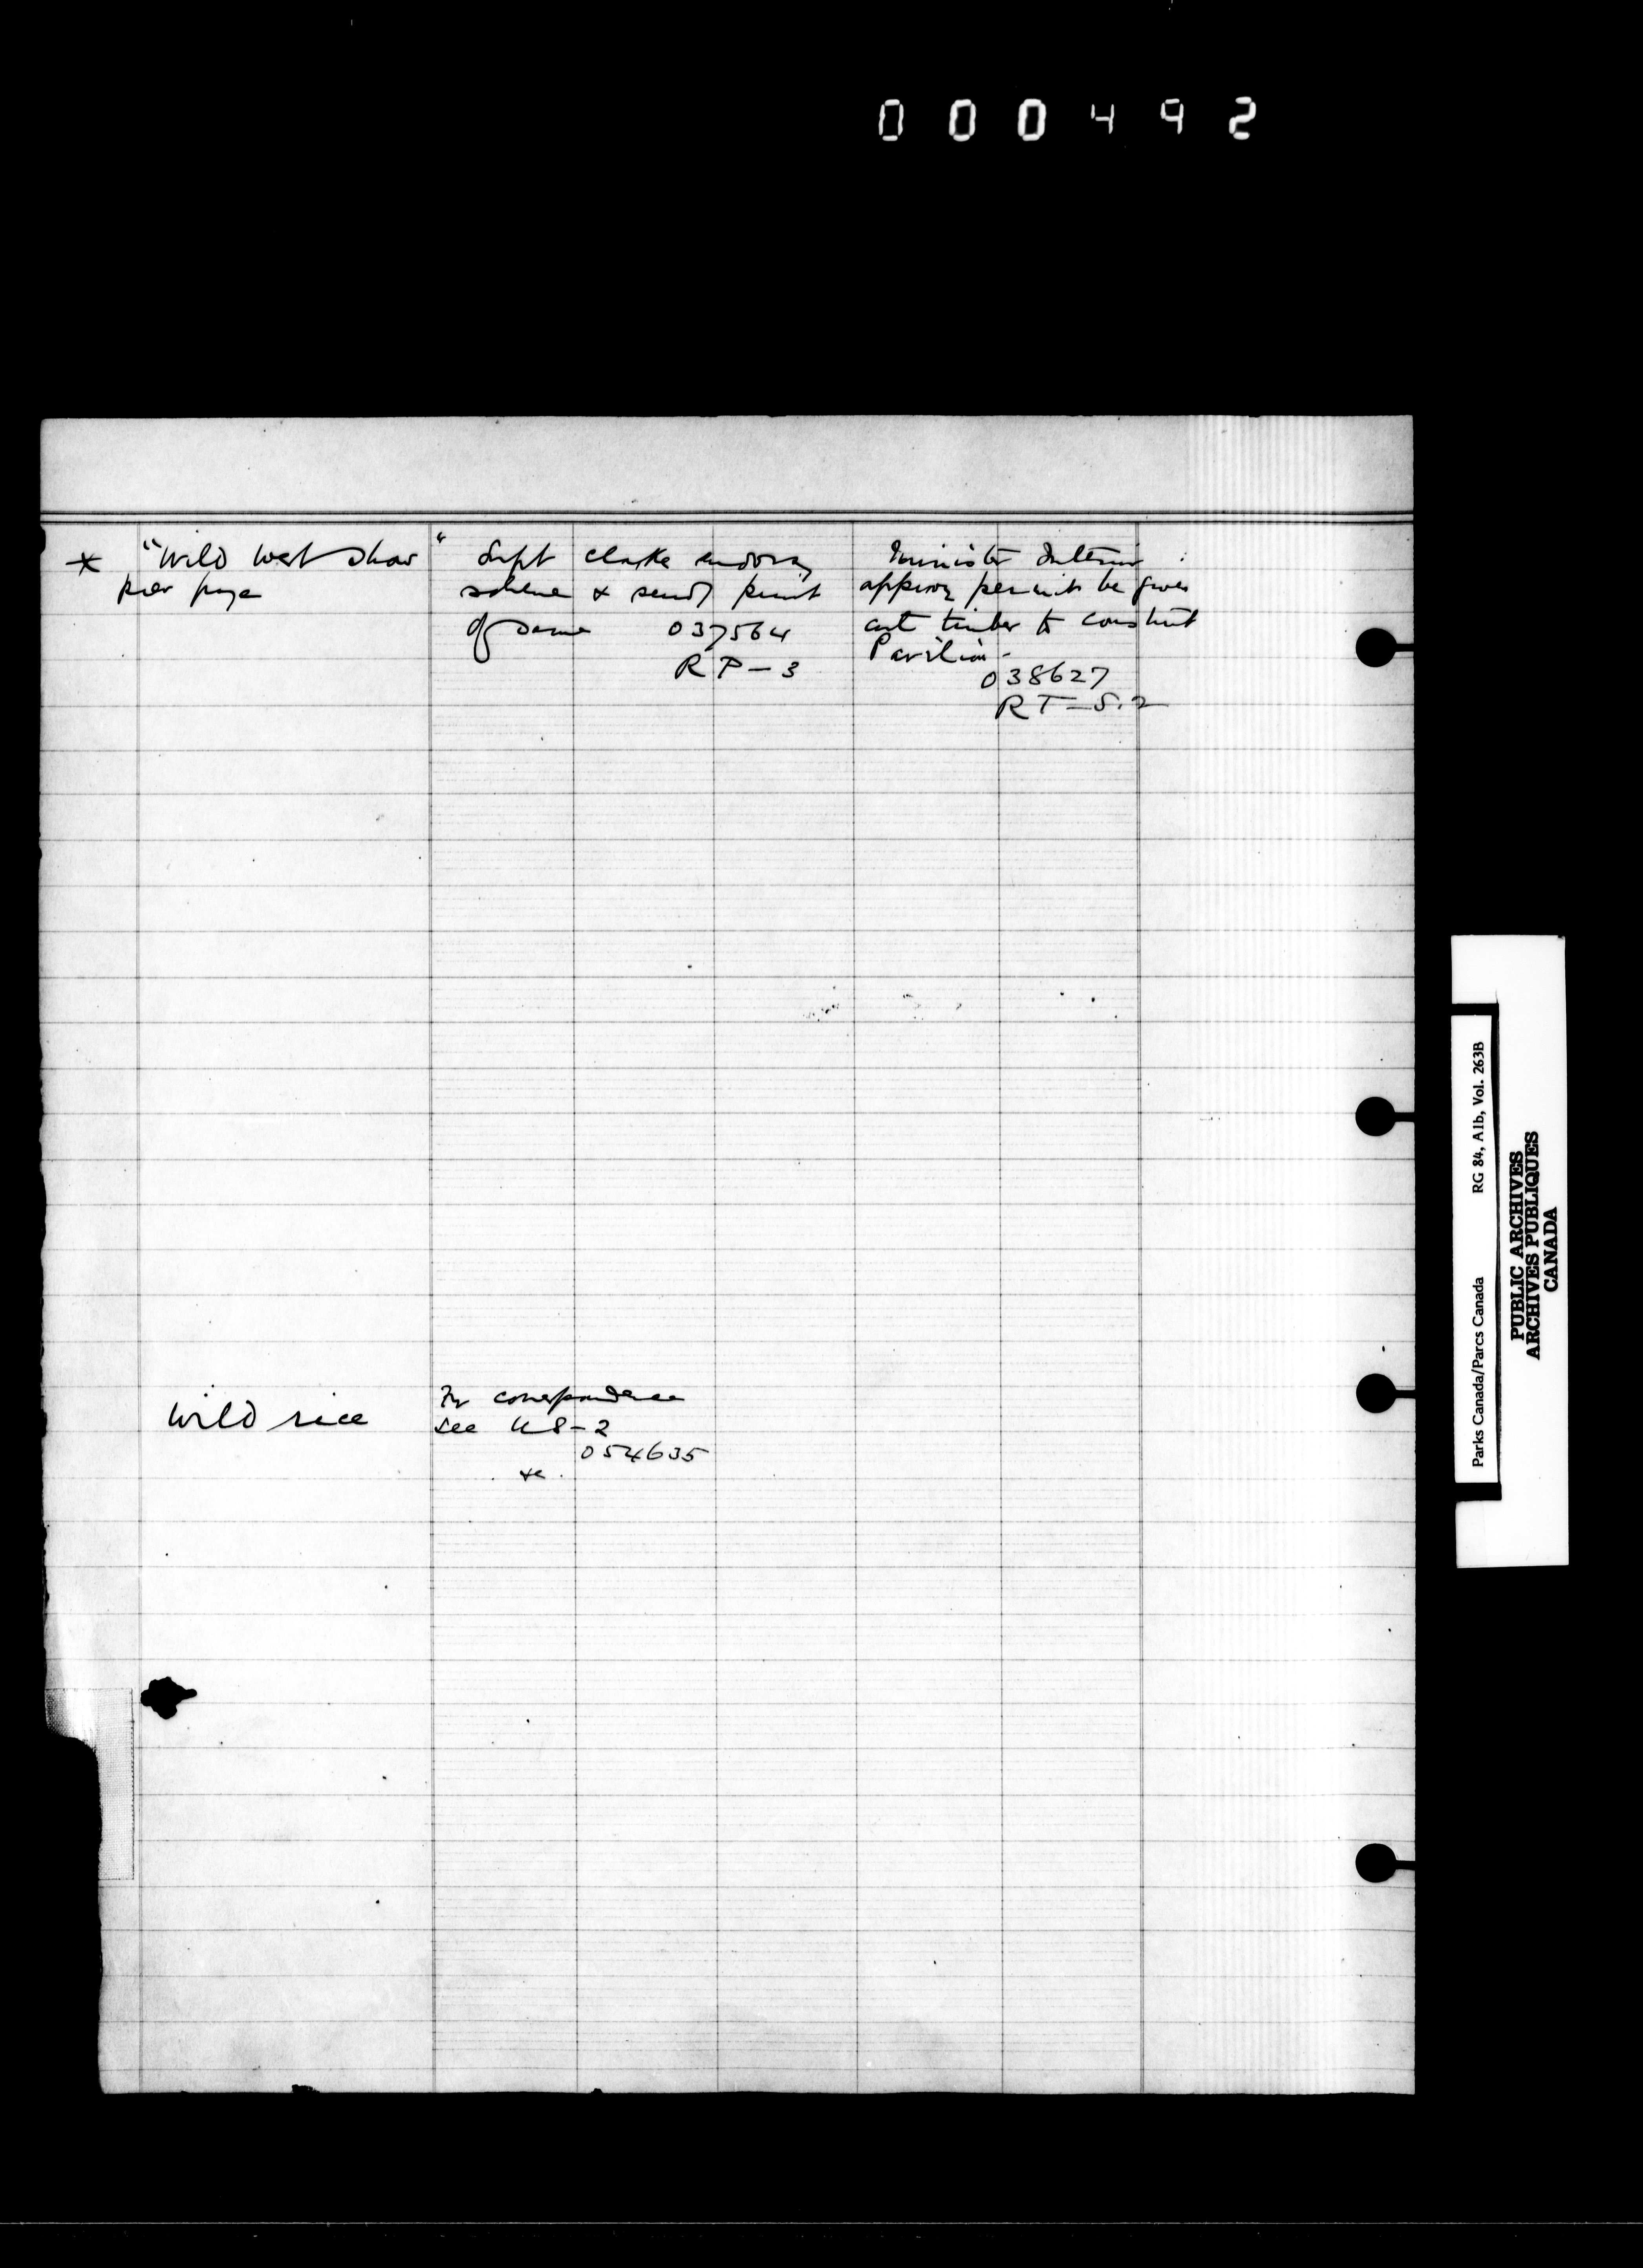 000492
* "Wild West Show"
prev page
Supt Clarke endorses
scheme & sends print
of same 037564
RP-3
Minister Interior
approves permit be given
cut timber to construct
Pavilion -
038627
RT-S.2
Wild rice
For correspondence
see U8-2
054635
&c.
Parks Canada/Parcs Canada RG 84, Alb, Vol. 263B
PUBLIC ARCHIVES
ARCHIVES PUBLIQUES
CANADA